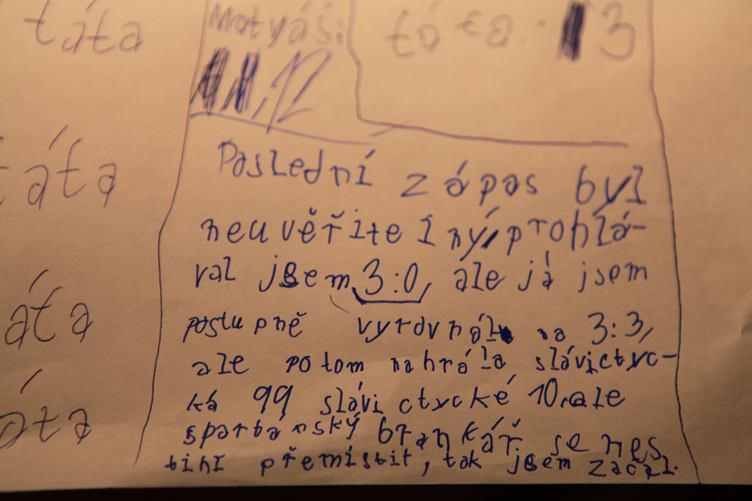 táta
Matyáš:
táta: 3
12
táta
Poslední zápas byl
neuvěřitelný, prohlá-
val jsem 3:0, ale já jsem
táta
postupně vyrovnál na 3:3,
ale potom nahrála slávictvc-
ká 99 slávictvcké 10, ale
táta
spartánský brankář se nes
tihl přemístit, tak jsem začal.